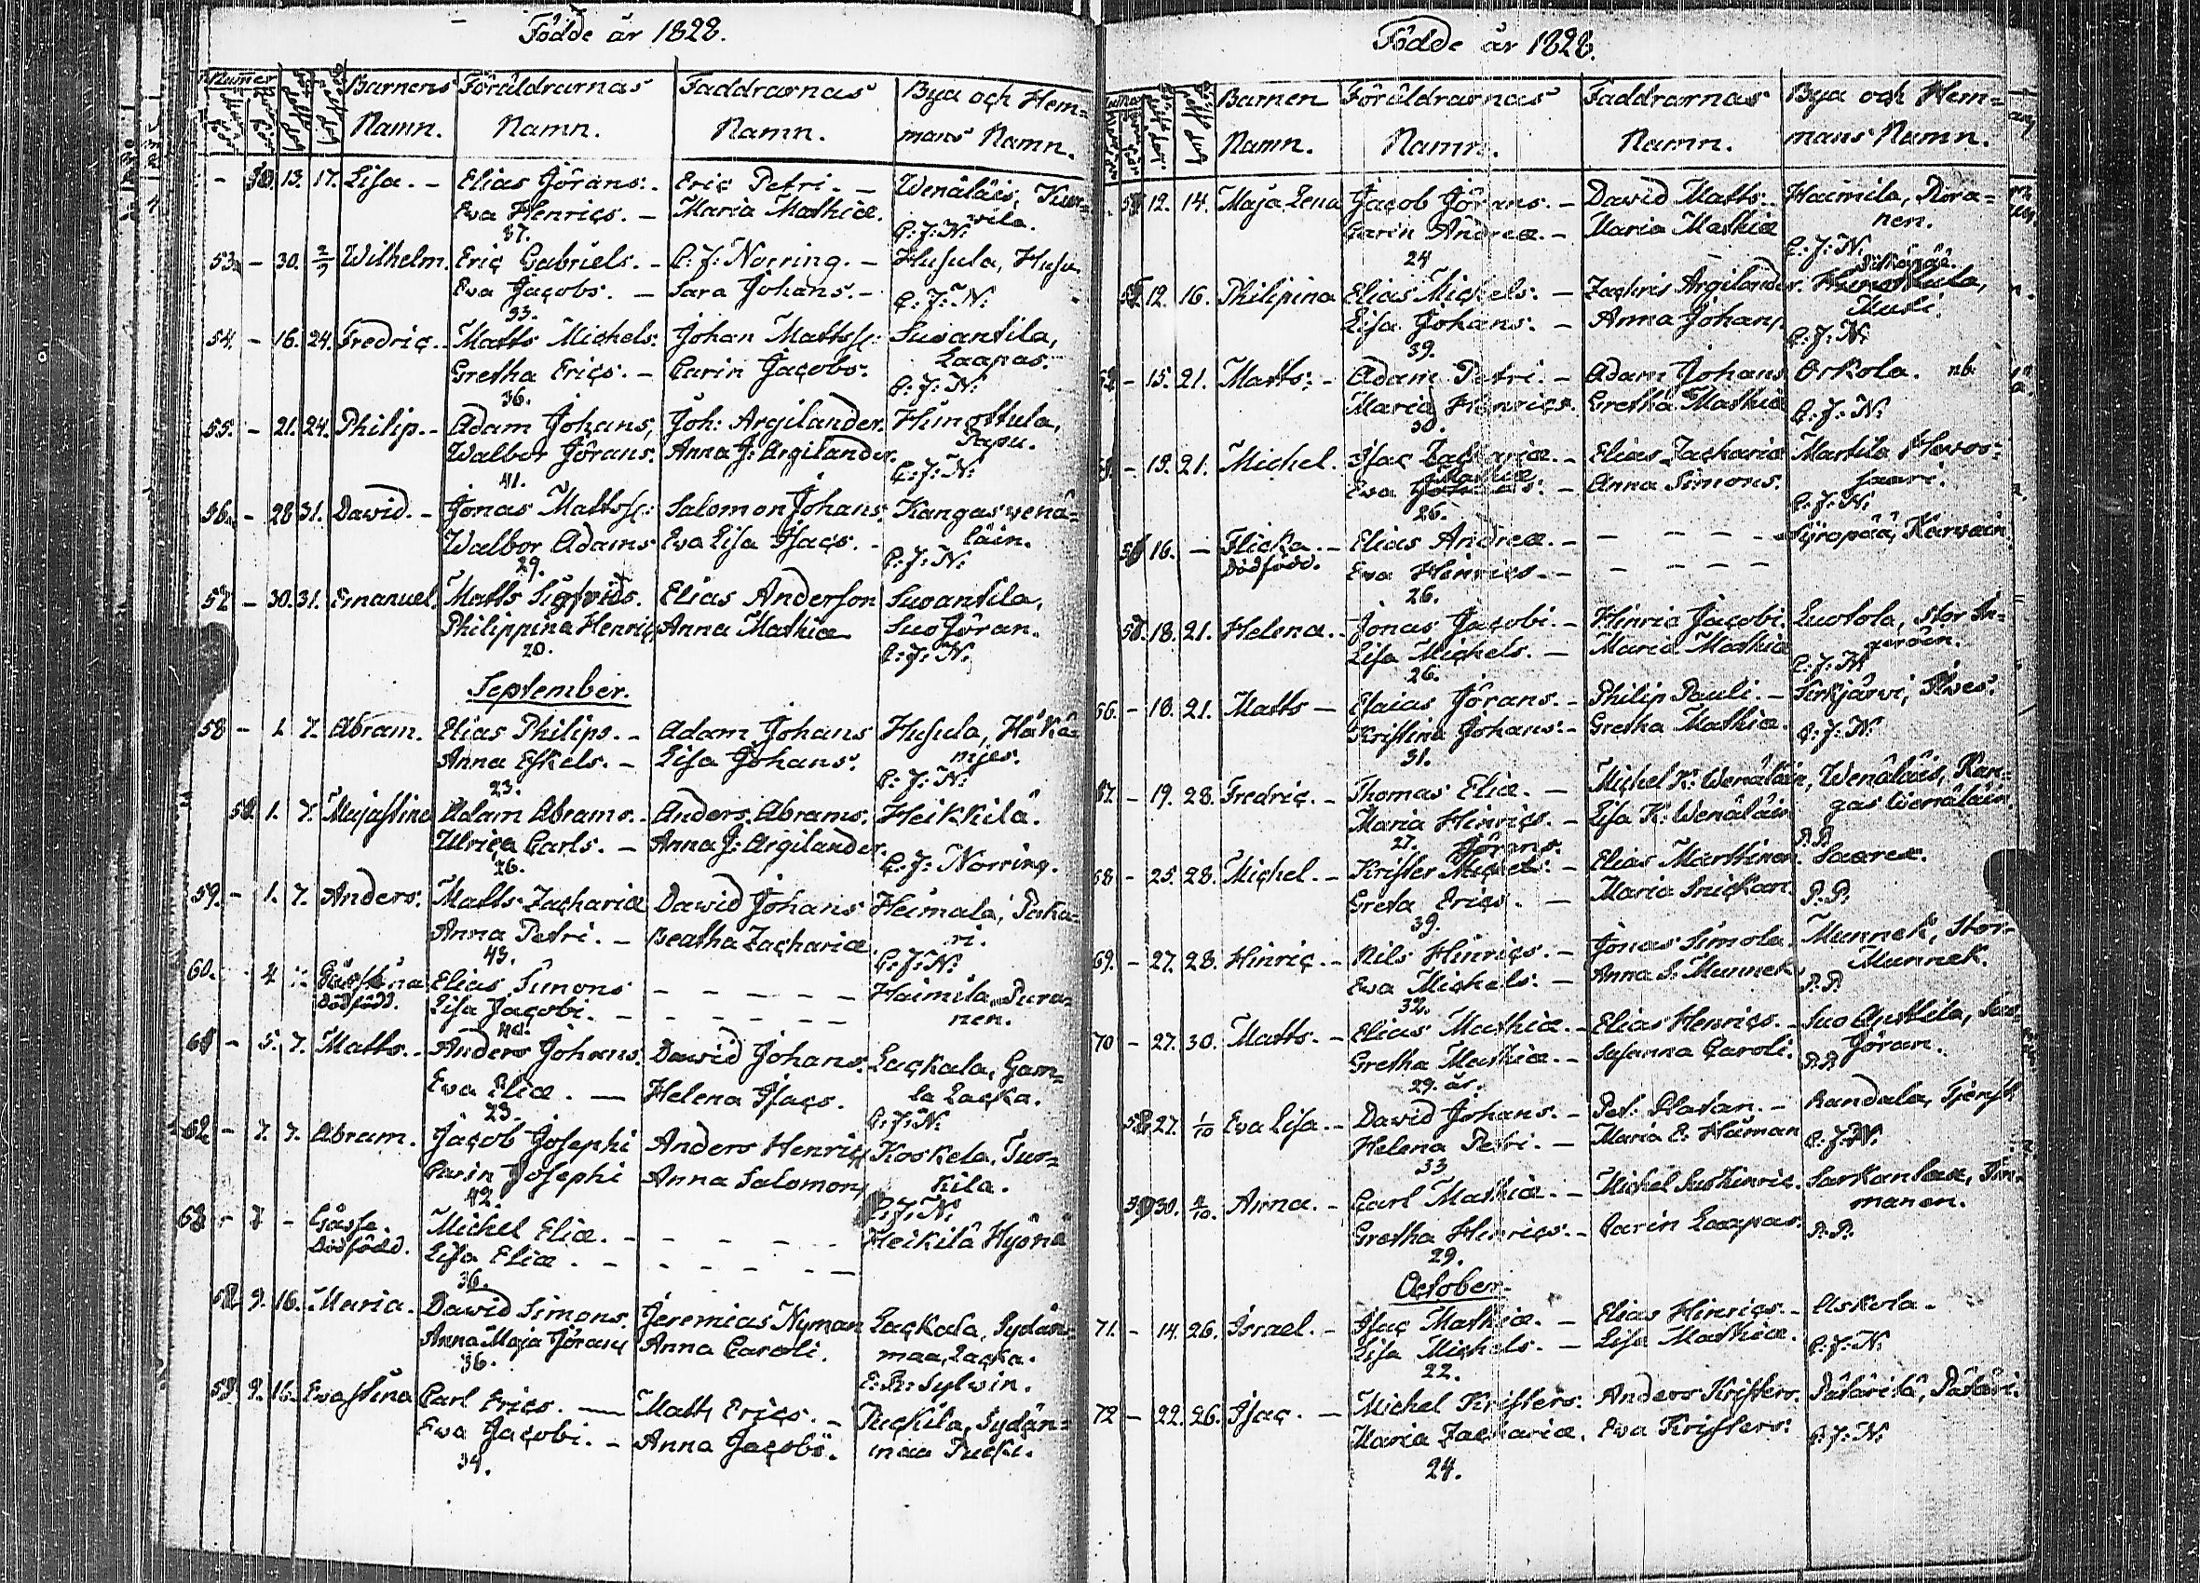 Födde år 1828.
Numer
Barnens Namn.
Föräldrarnas Namn.
Faddrarnas Namn.
Bya och Hemmans Namn.
- 13. 17. Lisa. - Elias Jörans: - Eric Petri. - Wenäläis, Kur=
Ewa Henrics. - Maria Mathiæ. wila.
37. C: J: N:
53. - 30. 2/9 Wilhelm. Eric Gabriels. - C: J: Norring. - Husula, Husu
Ewa Jacobs. - Sara Johans. - C: J: N:
33.
54. - 16. 24. Fredric. - Matts Michels: Johan Mattss: Suoantila,
Gretha Erics. - Carin Jacobs: Laapas.
36. C: J: N:
55. - 21. 24. Philip. - Adam Johans, Joh: Argilander. Himottula,
Walbor Jörans: Anna J: Argilander. Papu.
41. C: J: N:
56. - 28 31. David. - Jonas Mattss: Salomon Johans: Kangaswenä=
Walbor Adams Ewa Lisa Isacs. - läin.
29. C: J: N:
57 - 30. 31. Emanuel. Matts Sigfrids. Elias Anderson Suoantila,
Philippina Henric Anna Mathiæ Suo Jöran.
20. C: J: N:
September.
58 - 1. 7. Abram. Elias Philips. - Adam Johans Husula, Häkä=
Anna Eskels. - Lisa Johans. mies.
23. C: J: N:
1. 7. Majastina Adam Abrams. - Anders Abrams. Heikkilä.
Ulrica Carls. - Anna J: Argilander.
26. C: J: Norring.
59. - 1. 7. Anders. Matts Zachariæ David Johans Heimala, Paka=
Anna Petri. - Beatha Zachariæ ri.
43. C: J: N:
60. - 4 Elias Simons - - - - - Haimila, Pura=
Dödfödd. Lisa Jacobi. - - - - - - nen.
40.
61 - 5. 7. Matts. - Anders Johans. David Johans. Lackala, Gam=
Ewa Eliæ. - Helena Isacs. la Lacka.
23. C: J: N:
62 - 7. 7. Abram. Jacob Josephi Anders Henric Koskela, Tur=
Carin Josephi Anna Salomon kila.
42. C: J: N:
63 - 7 - Gåsse. Michel Eliæ. - - - - - Heikilä Hyönä
Dödfödd. Lisa Eliæ. - - - - - -
36.
9. 16. Maria. David Simons. Jeremias Nyman Lackala, Sydän=
Anna Maja Jörans Anna Caroli. maa, Lacka.
36. E: R: Sylwin.
9. 16. Ewastina Carl Erics. - Matts Erics. - Puckila, Sydän=
Ewa Jacobi. - Anna Jacobs. maa Pucki.
34.
Födde år 1828.
Barnen Namn.
Föräldrarnas Namn.
Faddrarnas Namn.
Bya och Hemmans Namn.
12. 14. Maja Lena Jacob Jörans. - David Matts: - Haimila, Pura=
Carin Andreæ. - Maria Mathiæ nen.
24 C: J: N.
12. 16. Philipina Elias Michels: - Zachris Argilander.
Lisa Johans: - Anna Johans.
39. C: J: N:
- 15. 21. Matts: - Adam Petri. - Adam Johans Orkola. nb.
Maria Henrics. Gretha Mathiæ C: J: N:
30.
- 19. 21. Michel. Isac Zachariæ. - Elias Zachariæ Martila
Ewa Mathiæ - Anna Simons. saari.
26. C: J: N:
16. - Flicka. - Elias Andreæ. - - - - - Syropää, Karwain.
Dödfödd. Ewa Henrics. - - - - - -
26.
18. 21. Helena. - Jonas Jacobi. - Hinric Jacobi. Luotola, Stor In=
Lisa Michels. - Maria Mathiæ geroin.
26. C: J: N
66. - 18. 21. Matts - Esaias Jörans. - Philip Pauli. - Sirkjärwi,
Kristina Johans: - Gretha Mathiæ. C: J: N:
31.
67. - 19. 28. Fredric. - Thomas Eliæ. - Michel K: Wenäläin, Wenäläis, Kan=
Maria Hinrics. - Lisa K: Wenäläin gas Wenäläin
27. P. P.
68 - 25. 28. Michel. - Krister Jörans: - Elias Marttinen. Saarex.
Greta Erics. - Maria Snickar. P. P.
39.
69. - 27. 28. Hinric. - Nils Hinrics. - Jonas Simola. Munnek, Stor-
Ewa Michels: - Anna S: Munnek Munnek.
32. P. P.
70 - 27. 30. Matts. - Elias Mathiæ. - Elias Henrics. - Suo Anttila, Suo=
Gretha Mathiæ. - Susanna Caroli. Jöran.
29. år. P. P.
27. 1/10 Ewa Lisa. - David Johans. - Pet: Platan. - Randala,
Helena Petri. - Maria E: Haiman C: J: N:
33
30. Anna. - Carl Mathiæ. - Michel Suikinric. Sarkanlax,
Gretha Henrics. - Carin Laapas. manen.
29. P. P.
October.
71. - 14. 26. Israel. - Isac Mathiæ. - Elias Hinrics. - Uskola.
Lisa Michels. - Lisa Mathiæ. C: J: N:
22.
72 - 22. 26. Isac. - Michel Kristers: Anders Kristers. Pätärilä, Pätäri.
Maria Zachariæ. Ewa Kristers: C: J: N:
24.